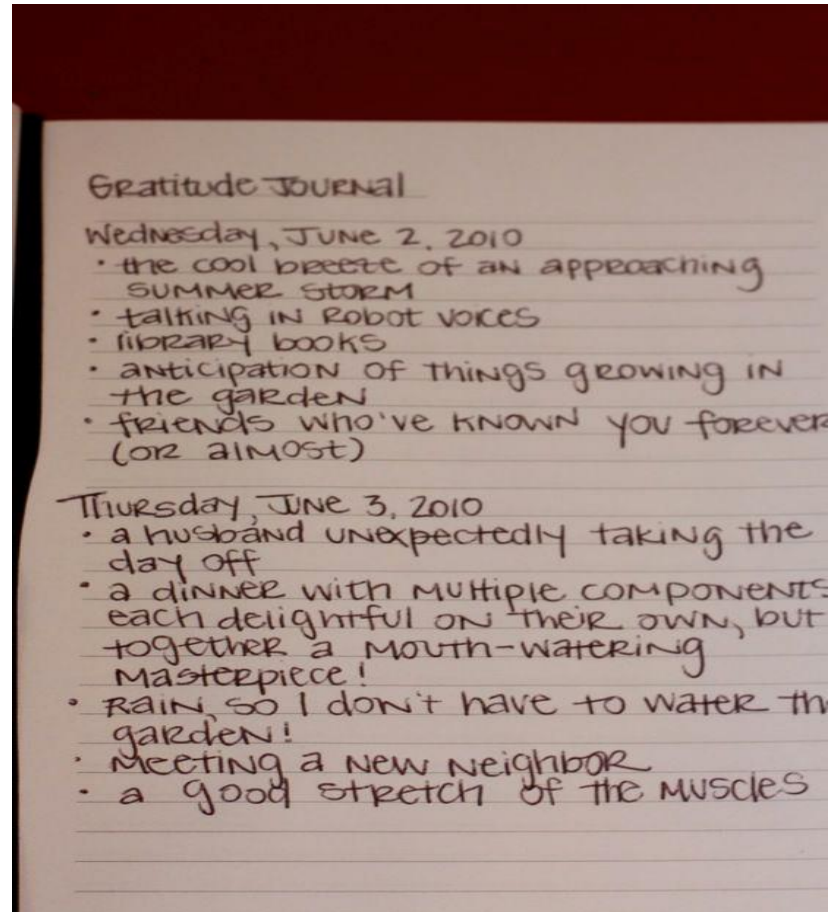 Gratitude Journal
Wednesday, June 2, 2010
· the cool breeze of an approaching
summer storm
· talking in robot voices
· library books
· anticipation of things growing in
the garden
· friends who've known you forever
(or almost)
Thursday, June 3, 2010
· a husband unexpectedly taking the
day off
· a dinner with multiple components
each delightful on their own, but
together a mouth-watering
masterpiece!
· Rain, so I don't have to water th
garden!
· Meeting a new neighbor
· a good stretch of the muscles